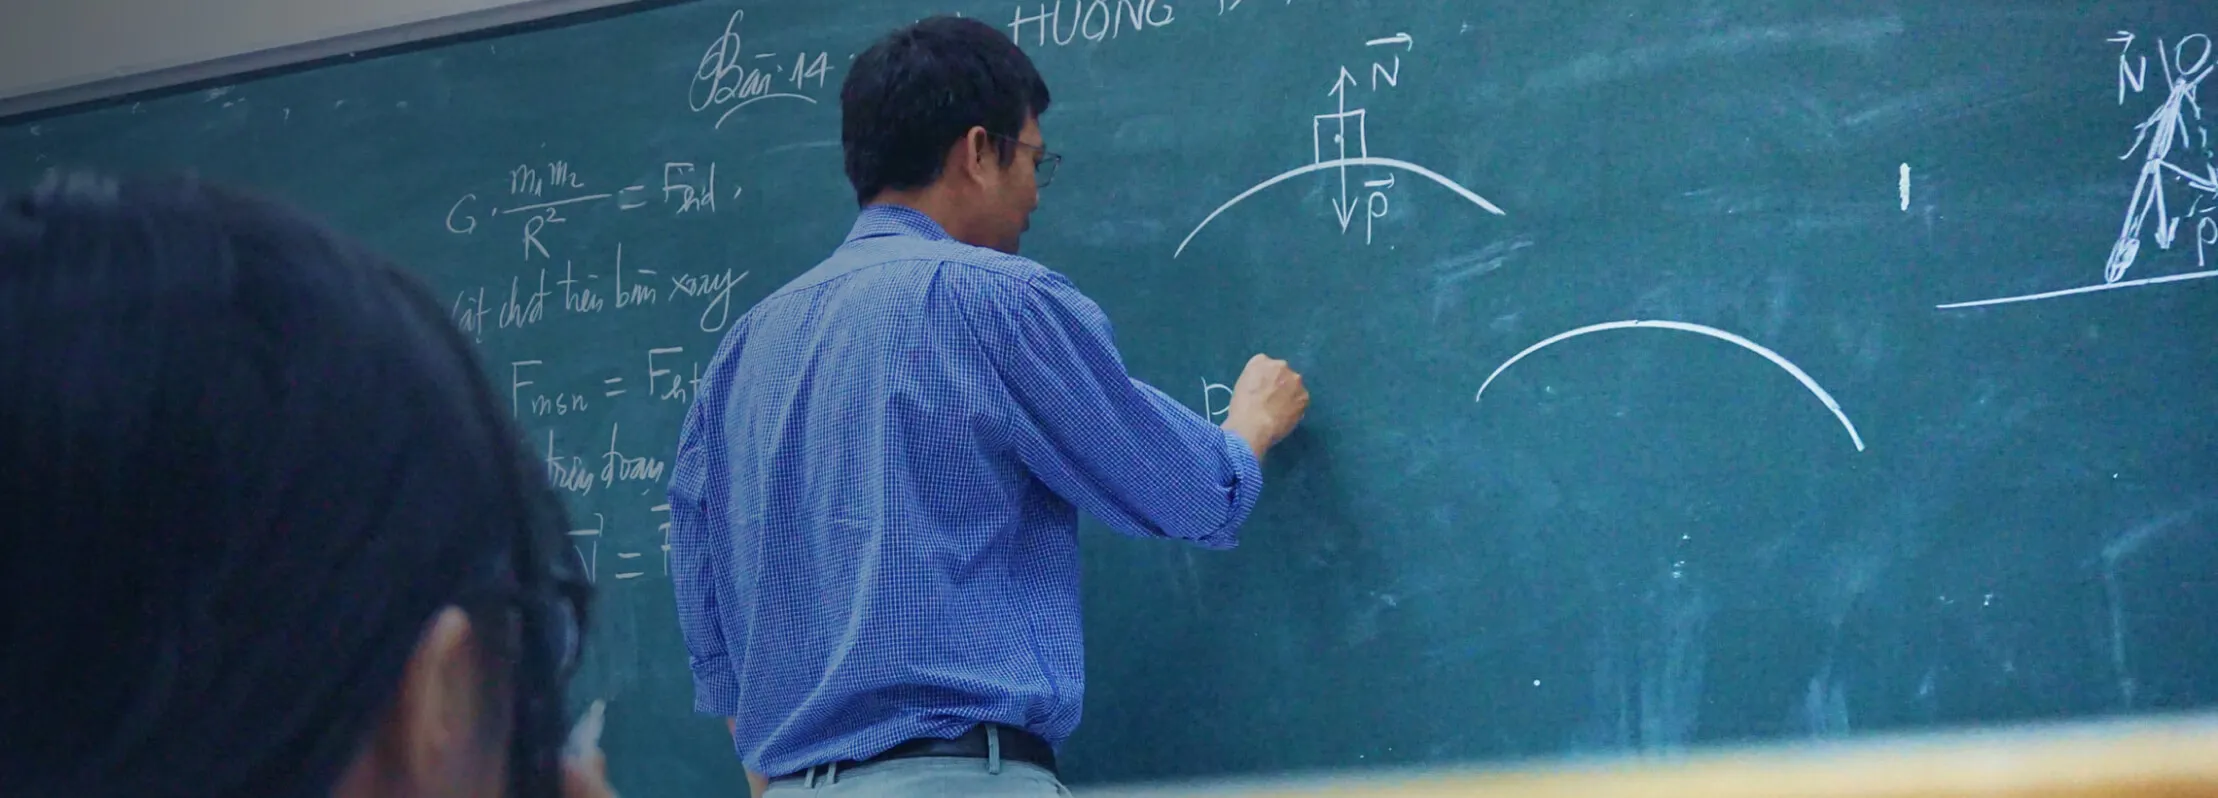 Bài 14
HƯỚNG
G. m₁m₂/R² = Fhd.
vật chất trên bàn xoay
Fmsn = Fht
trên đoạn
N⃗ =
N⃗
P⃗
P
N⃗
P⃗